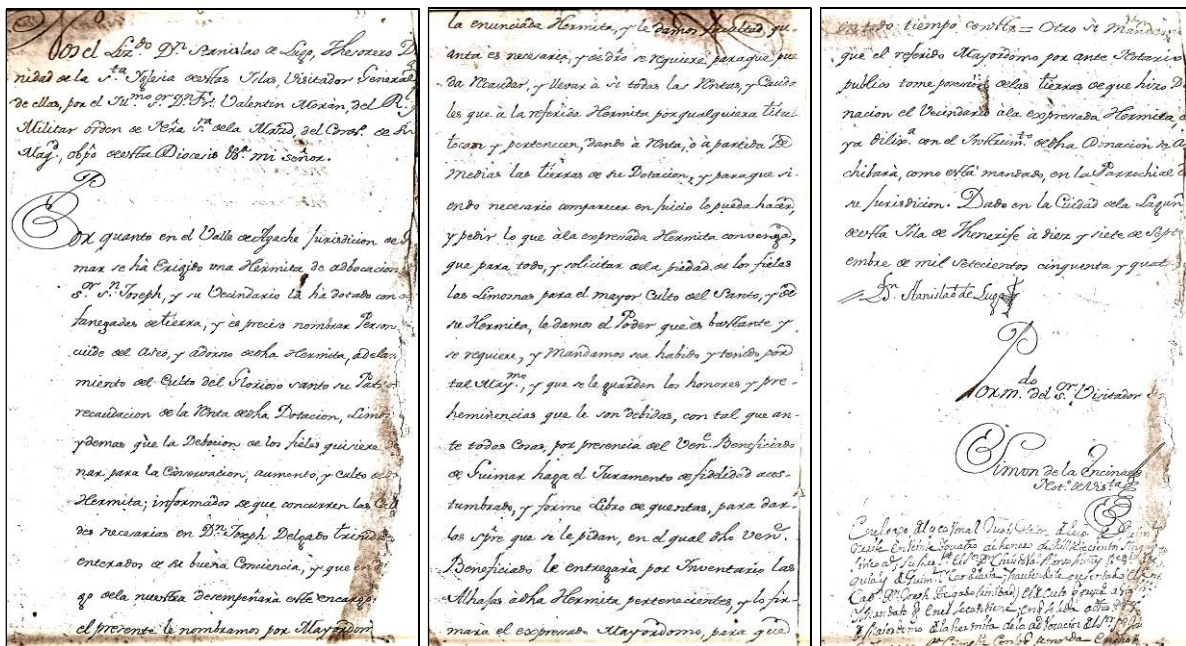 Nos el Liz.do D.n Stanislao de Lugo, Thesorero D
nidad de la S.ta Iglesia destas Islas, Visitador General
de ellas, por el Iu.mo s.or D.n Fr. Valentin Morán, del R.l
Militar orden de Señra S.ra de la Mrzd, del Cons.o de Su
Mag.d, obpo desta Diocesis &.a mi señor.
Por quanto en el Valle de Agache Jurisdicion de Gui
mar se há Erigido vna Hermita de adbocacion
S.or S.n Joseph, y su Vecindario la há dotado con
fanegadas de tierra, y es preciso nombrar Person
cuide del Aseo, y adorno de dha Hermita, adelan
miento del Culto del Glorioso santo su Patr
recaudacion de la Renta de dha Dotacion, Limos
y demas que la Debocion de los fieles quisiere
nar para la Conservacion, aumento, y culto de d
Hermita; informados de que concurren las Cali
des necesarias en D.n Joseph Delgado Trinidad
enterados de su buena Conciencia, y que en
go de la nuestra desempeñara este encargo
el presente le nombramos por Mayordom
la enunciada Hermita, y le damos facultad, qu
anta es necesaria, y de dro se requiere, para que pue
da Recaudar, y llevar à si todas las Rentas, y Cauda
les que à la referida Hermita por qualquiara titu
tocan y pertenecen, dando à Renta, ò à partida de
medias las tierras de su Dotacion, y para que si
endo necesario comparecer en juicio lo pueda hacer,
y pedir lo que à la expresada Hermita convenga,
que para todo, y solicitar de la piedad de los fieles
las Limosnas para el mayor Culto del Santo, y de
su Hermita, le damos el Poder que es basttante y
se requiere, y Mandamos sea habido y tenido por
tal May.mo, y que se le guarden los honores y pre-
heminencias que le son debidas, con tal que an-
te todas Cosas, por presencia del Ven.e Beneficiado
de Guimar haga el Juramento de fidelidad acos-
tumbrado, y forme Libro de quentas, para dar-
las spre que se le pidan, en el qual dho Ven.e
Beneficiado le entregara por Inventario las
Alhajas à dha Hermita pertenecientes, y lo fir-
mara el expresado Mayordomo, para que
en todo tiempo constte = Otro si Mandam
que el referido Mayordomo por ante Notario
publico tome posesion de las tierras de que hizo D
nacion el Vecindario à la expresada Hermita, c
ya dilix.a con el Instrum.to de dha Donacion se A
chibará, como está mandado, en la Parrochial de
su Jurisdicion. Dado en la Ciudad de la Lagun
desta Isla de Thenerife à diez y siete de Sept
embre de mil setecientos cinquenta y quat
D.n Stanislao de Lugo
Por m.do del S.or Visitador
Simon de la Encinas
Not.o de Vista